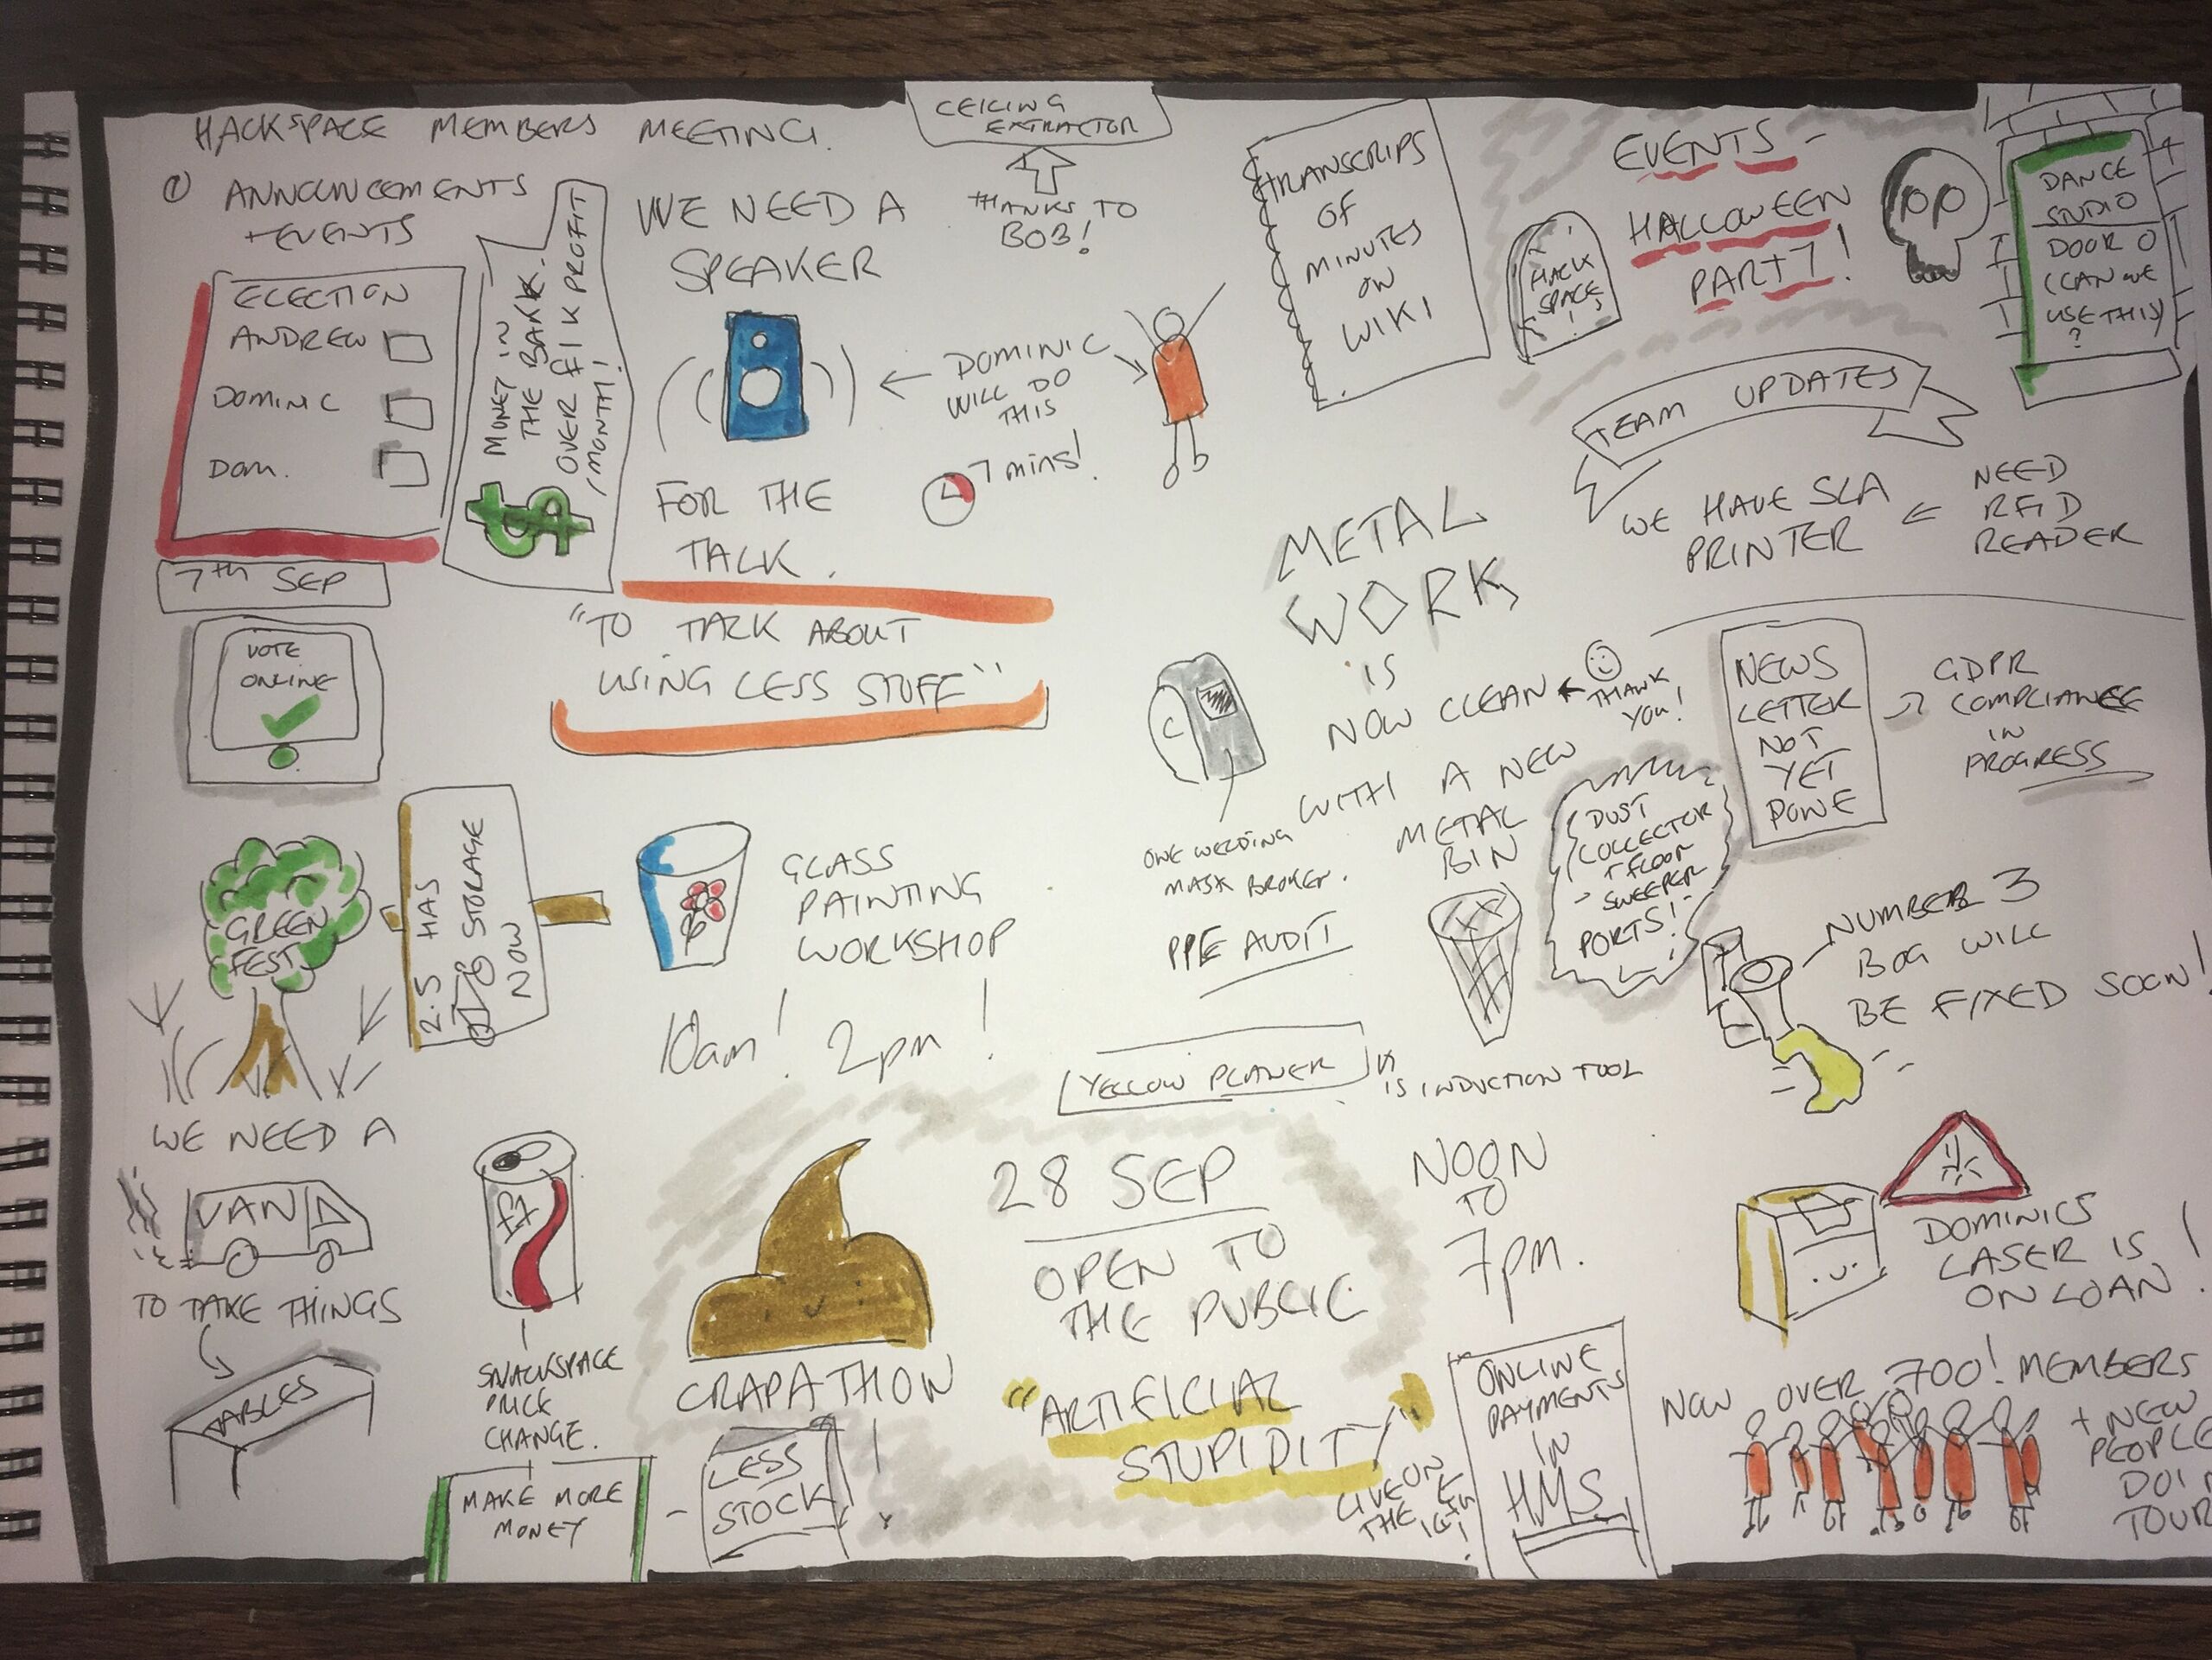 HACKSPACE MEMBERS MEETING.
① ANNOUNCEMENTS
+ EVENTS
ELECTION
ANDREW
DOMINIC
DOM.
7th SEP
VOTE
ONLINE
MONEY IN
THE BANK.
OVER £1K PROFIT
/MONTH!
WE NEED A
SPEAKER
FOR THE
TALK.
DOMINIC
WILL DO
THIS
7 mins!
"TO TALK ABOUT
USING LESS STUFF"
CEILING
EXTRACTOR
THANKS TO
BOB!
TRANSCRIPS
OF
MINUTES
ON
WIKI
EVENTS -
HALLOWEEN
PARTY!
HACK
SPACE
!
DANCE
STUDIO
DOOR
(CAN WE
USE THIS)
?
TEAM UPDATES
WE HAVE SLA
PRINTER
NEED
RFID
READER
METAL
WORK
IS
NOW CLEAN
THANK
YOU!
WITH A NEW
METAL
BIN
ONE WELDING
MASK BROKEN.
PPE AUDIT
DUST
COLLECTOR
+ FLOOR
SWEEPER
PORTS!
NEWS
LETTER
NOT
YET
DONE
GDPR
COMPLIANCE
IN
PROGRESS
NUMBER 3
BOG WILL
BE FIXED SOON!
GREEN
FEST
2.5 HAS
STORAGE
NOW
GLASS
PAINTING
WORKSHOP
10am! 2pm!
YELLOW PLANER
IS INDUCTION TOOL
WE NEED A
VAN
TO TAKE THINGS
TABLES
SNACKSPACE
PRICE
CHANGE.
MAKE MORE
MONEY
LESS
STOCK
CRAPATHON
!
28 SEP
OPEN TO
THE PUBLIC
NOON
TO
7pm.
"ARTIFICIAL
STUPIDITY"
LIVE ON
THE
!
ONLINE
PAYMENTS
IN
HMS
DOMINICS
LASER IS
ON LOAN!
NOW OVER 700! MEMBERS
+ NEW
PEOPLE
TOUR